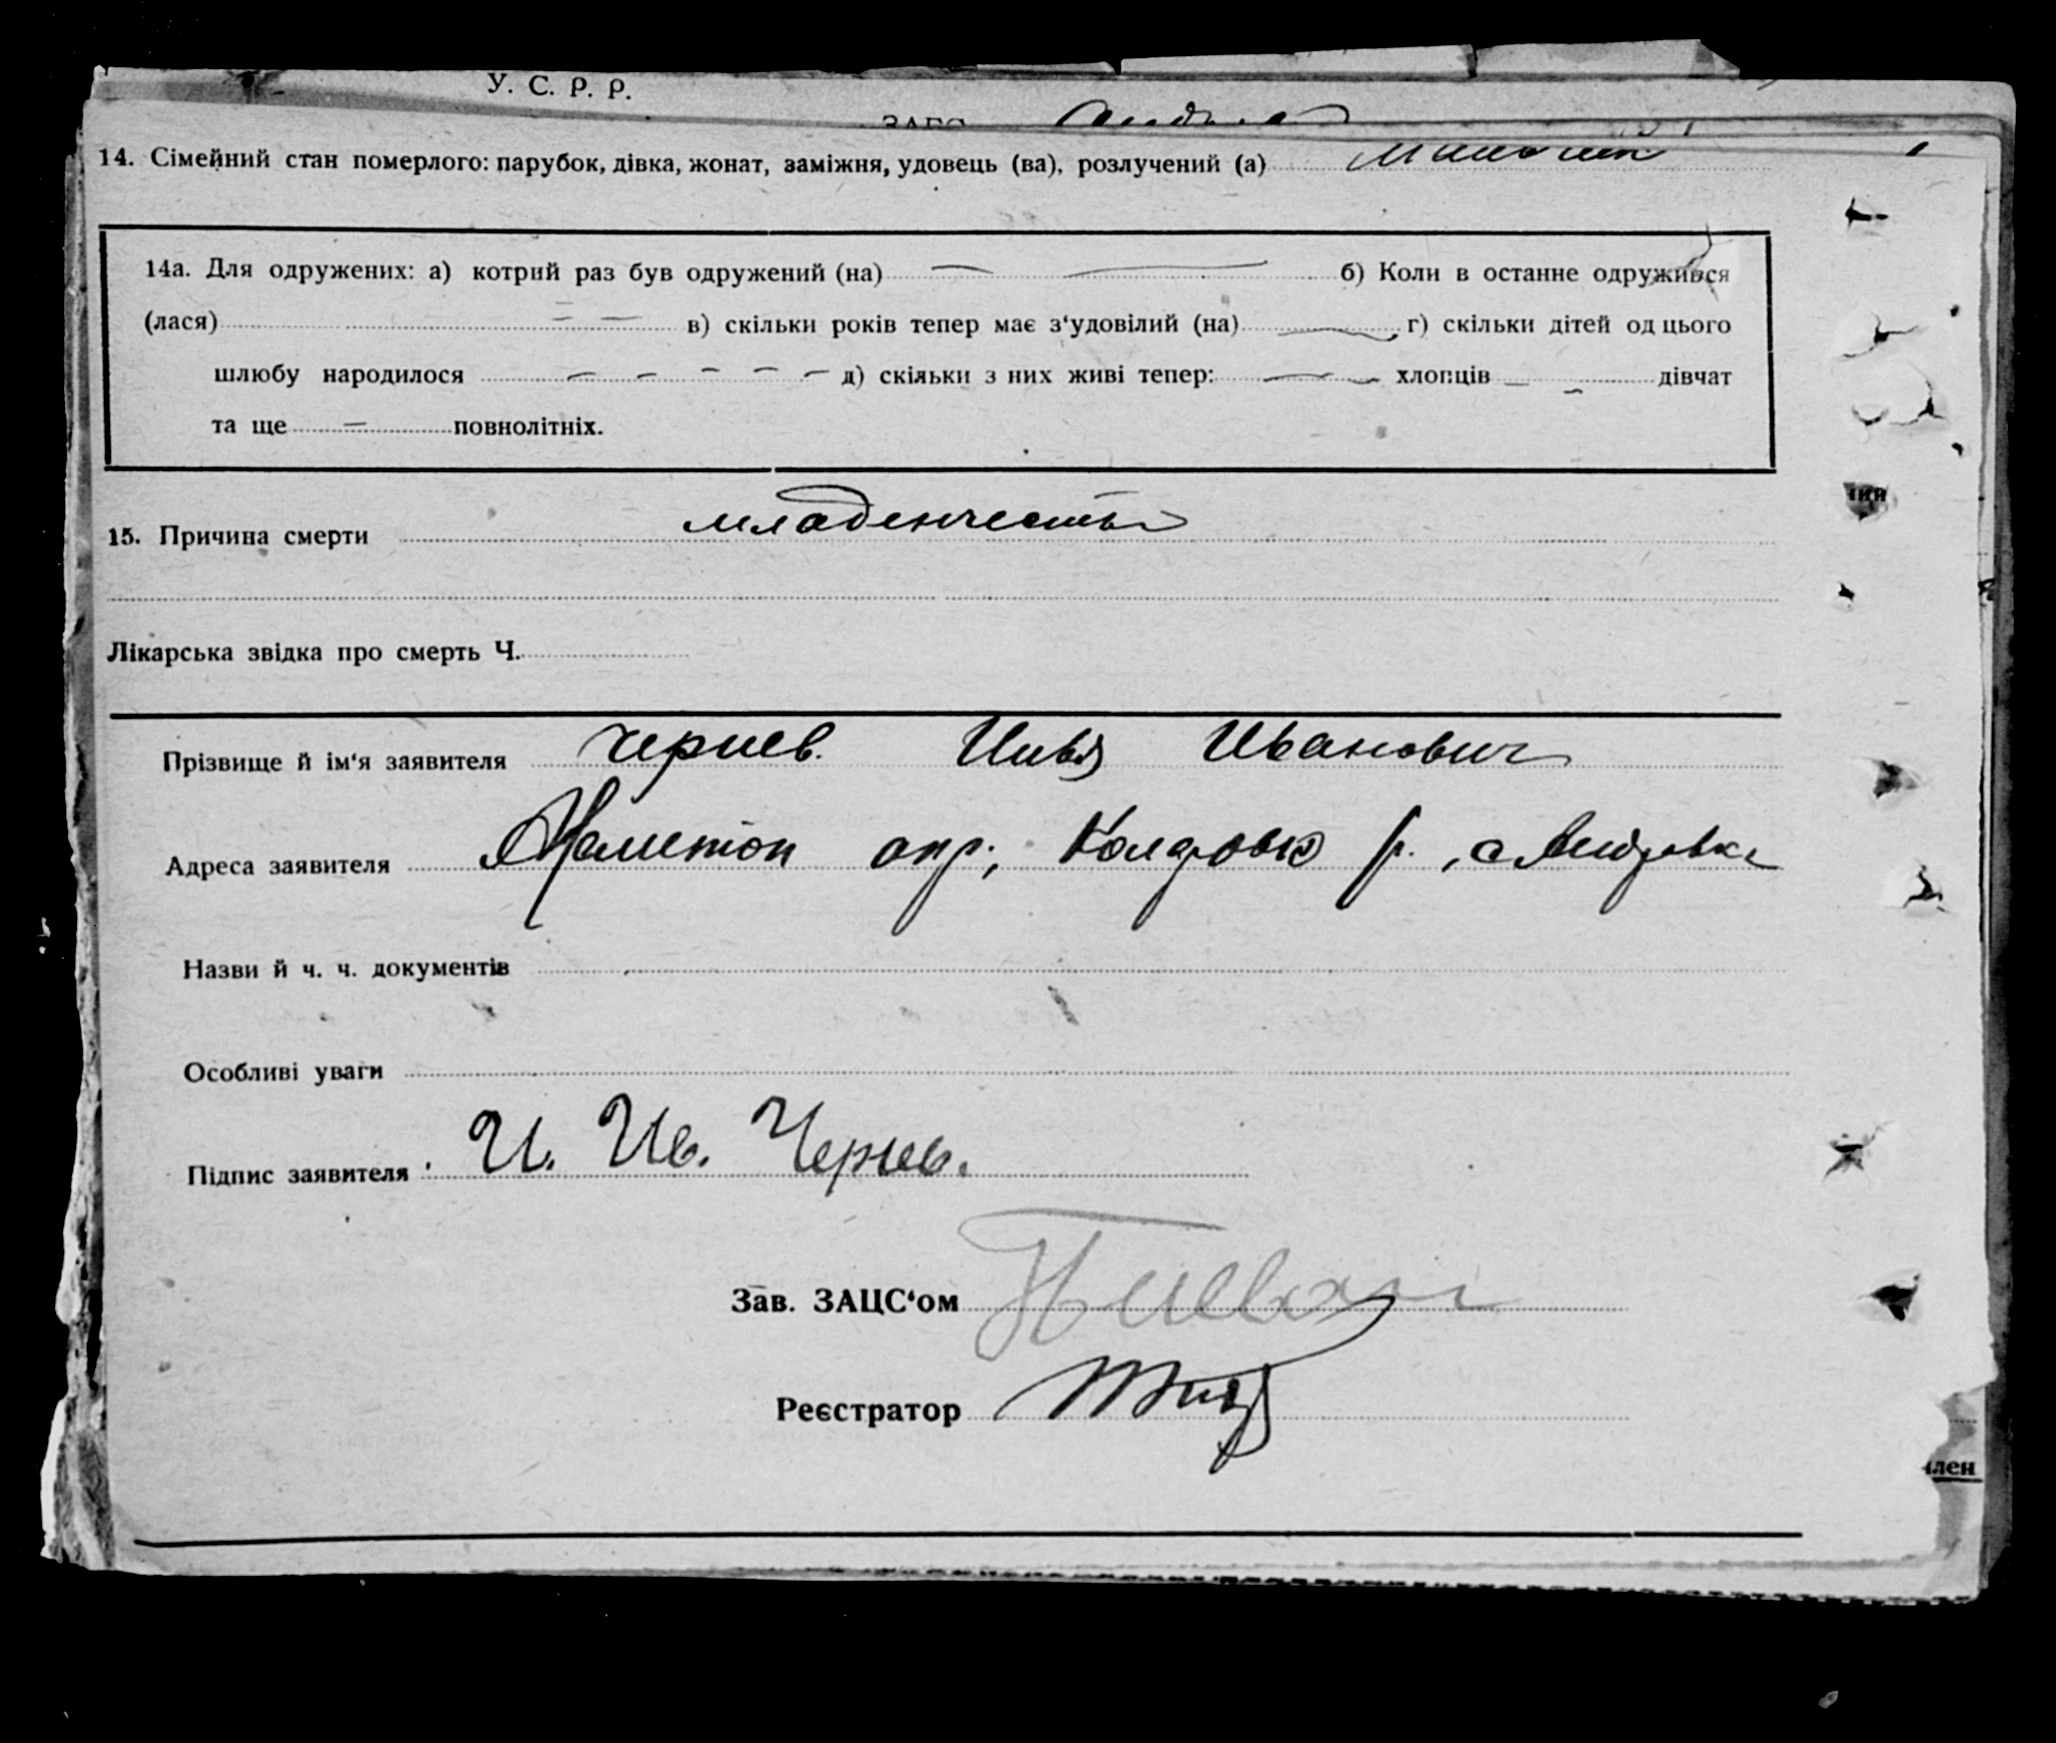 У. С. Р. Р.
14. Сімейний стан померлого: парубок, дівка, жонат, заміжня, удовець (ва), розлучений (а)
14а. Для одружених: а) котрий раз був одружений (на) б) Коли в останне одружився
(лася) в) скільки років тепер має з‘удовілий (на) г) скільки дітей од цього
шлюбу народилося д) скільки з них живі тепер: хлопців дівчат
та ще повнолітніх.
15. Причина смерти младенчество
Лікарська звідка про смерть Ч.
Прізвище й ім‘я заявителя Чернев. Иван Иванович
Адреса заявителя Мелитоп окр; р. , с
Назви й ч. ч. документів
Особливі уваги
Підпис заявителя И. Ив. Чернев.
Зав. ЗАЦС‘ом
Реєстратор
член